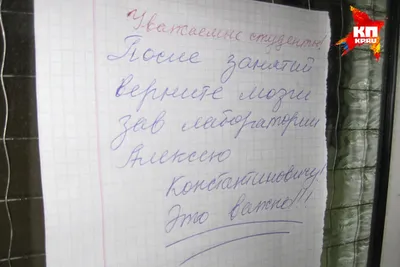 КП
KP.RU
Уважаемые студенты!
После занятий
верните мозги
зав лаборатории
Алексею
Константиновичу!
Это важно!!!